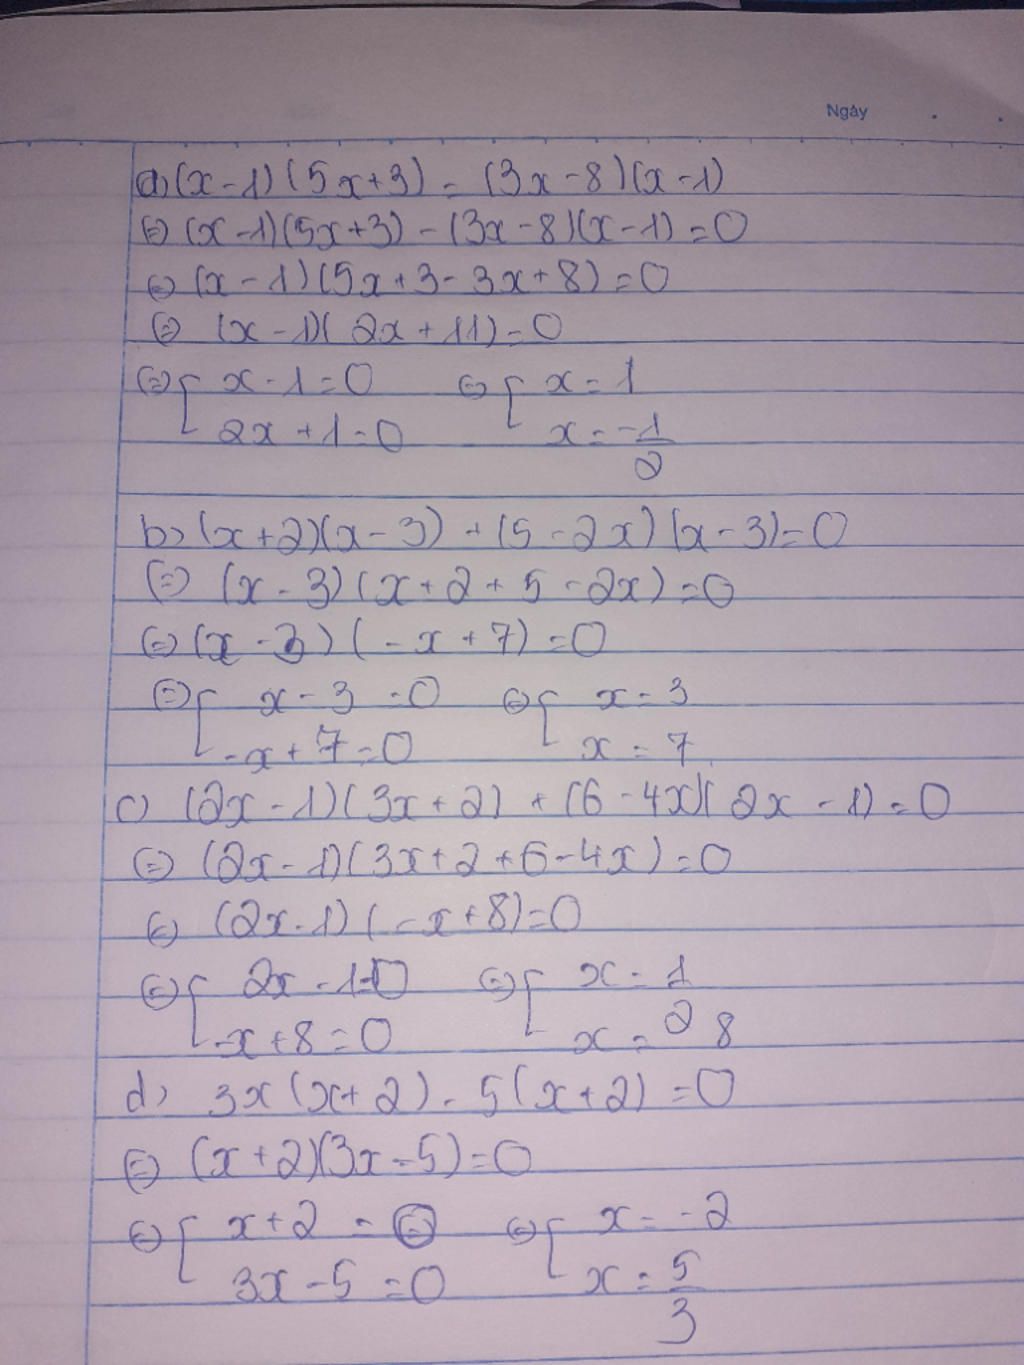 Ngày
a, (x-1)(5x+3) = (3x-8)(x-1)
⇔ (x-1)(5x+3) - (3x-8)(x-1) = 0
⇔ (x-1)(5x+3-3x+8) = 0
⇔ (x-1)(2x+11) = 0
⇔ [ x-1=0 ⇔ [ x=1
2x+1=0 x=-1/2
b, (x+2)(x-3) + (5-2x)(x-3) = 0
⇔ (x-3)(x+2+5-2x) = 0
⇔ (x-3)(-x+7) = 0
⇔ [ x-3=0 ⇔ [ x=3
-x+7=0 x=7
c) (2x-1)(3x+2) + (6-4x)(2x-1) = 0
⇔ (2x-1)(3x+2+6-4x) = 0
⇔ (2x-1)(-x+8) = 0
⇔ [ 2x-1=0 ⇔ [ x=1/2
-x+8=0 x=8
d, 3x(x+2) - 5(x+2) = 0
⇔ (x+2)(3x-5) = 0
⇔ [ x+2=0 ⇔ [ x=-2
3x-5=0 x=5/3